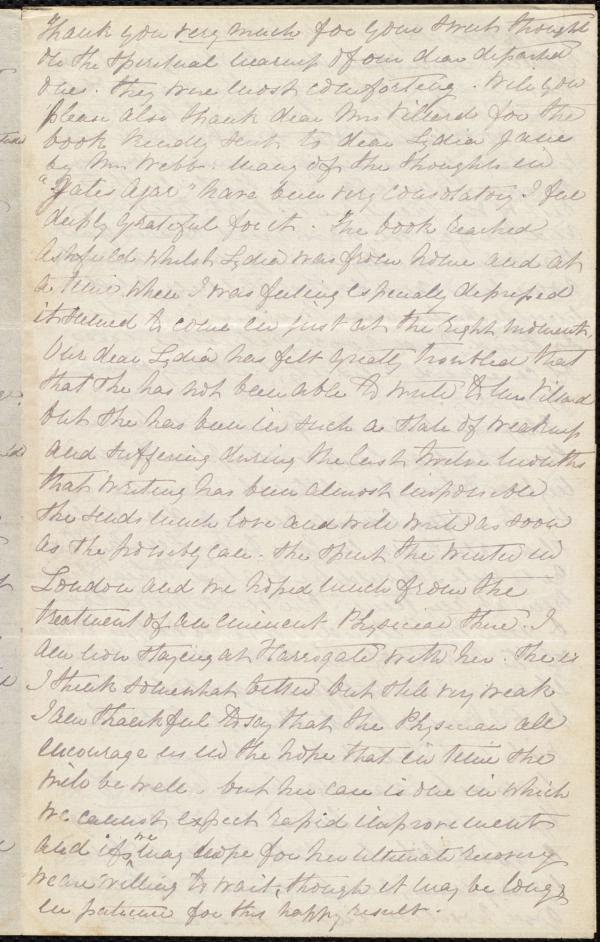 Thank you very much for your sweet thoughts
on the spiritual nearness of our dear departed
ones. they were most comforting. Will you
please also thank dear Mrs Villard for the
book kindly sent to dear Lydia Jane
by Mrs Webb. Many of the thoughts in
"Gates Ajar" have been very consolatory. I feel
deeply grateful for it. The book reached
Ashfield whilst Lydia was from home and at
a time when I was feeling especially depressed
it seemed to come in just at the right moment.
Our dear Lydia has felt greatly troubled that
that she has not been able to write to Mrs Villard
but she has been in such a state of weakness
and suffering during the last twelve months
that writing has been almost impossible
she sends much love and will write as soon
as she possibly can. She spent the winter in
London and we hoped much from the
treatment of an eminent Physician there. I
am now staying at Harrogate with her. She is
I think somewhat better but still very weak
I am thankful to say that the Physician all
encourage us in the hope that in time she
will be well. but her case is one in which
we cannot expect rapid improvement
and if we may hope for her ultimate recovery
we are willing to wait, though it may be long
in patience for this happy result.